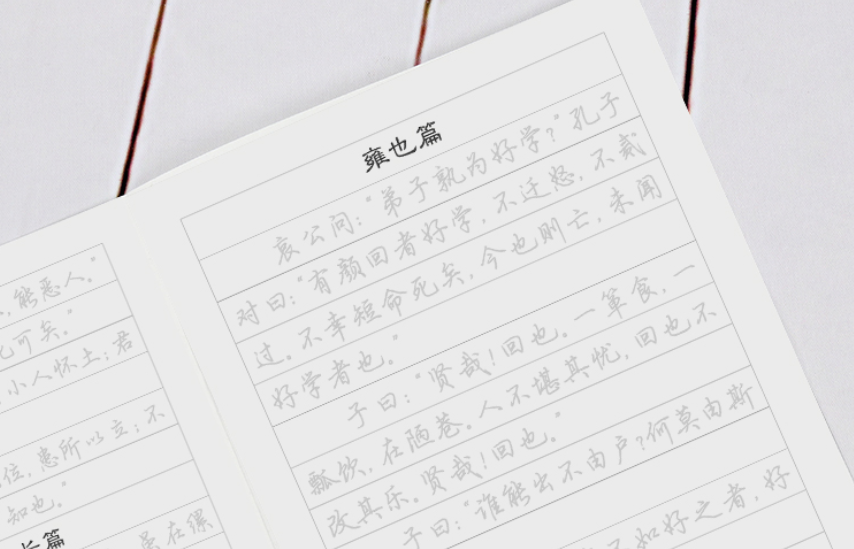 能恶人。"
可矣。"
小人怀土;君
位,患所以立;不
知也。"
长篇
虽在缧
雍也篇
哀公问:"弟子孰为好学?"孔子
对曰:"有颜回者好学,不迁怒,不贰
过。不幸短命死矣,今也则亡,未闻
好学者也。"
子曰:"贤哉!回也。一箪食,一
瓢饮,在陋巷。人不堪其忧,回也不
改其乐。贤哉!回也。"
子曰:"谁能出不由户?何莫由斯
不如好之者,好